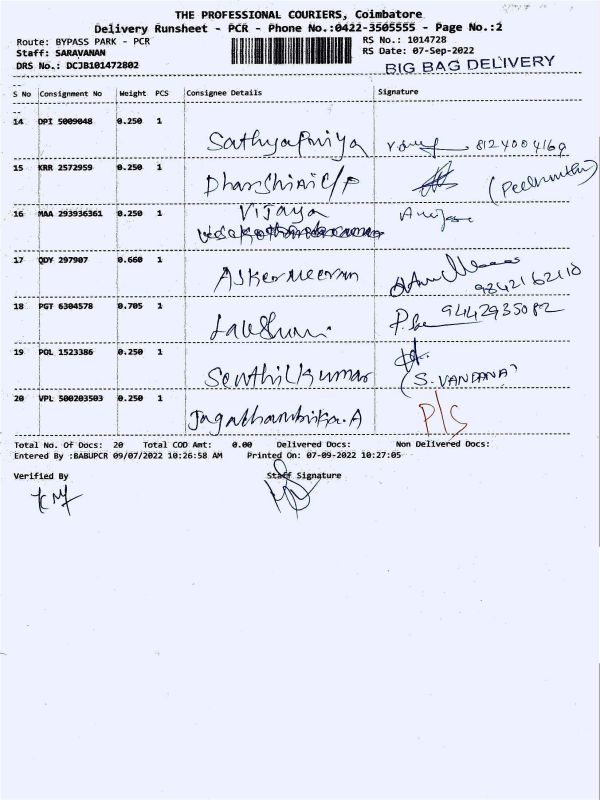 THE PROFESSIONAL COURIERS, Coimbatore
Delivery Runsheet - PCR - Phone No.:0422-3505555 - Page No.:2
Route: BYPASS PARK - PCR RS No.: 1014728
Staff: SARAVANAN RS Date: 07-Sep-2022
DRS No.: DCJB101472802 BIG BAG DELIVERY
S No Consignment No Weight PCS Consignee Details Signature
14 DPI 5009048 0.250 1
Sathyapriya 8124004169
15 KRR 2572959 0.250 1
Dharshini C/P
16 MAA 293936361 0.250 1 Vijaya
17 QDY 297907 0.660 1
Askermeeran 9842162110
18 PGT 6304578 0.705 1
Lakshmi 9442935082
19 POL 1523386 0.250 1
Senthilkumar (S. VANDANA)
20 VPL 500203503 0.250 1
Jagathambika.A P/S
Total No. Of Docs: 20 Total COD Amt: 0.00 Delivered Docs: Non Delivered Docs:
Entered By :BABUPCR 09/07/2022 10:26:58 AM Printed On: 07-09-2022 10:27:05
Verified By Staff Signature